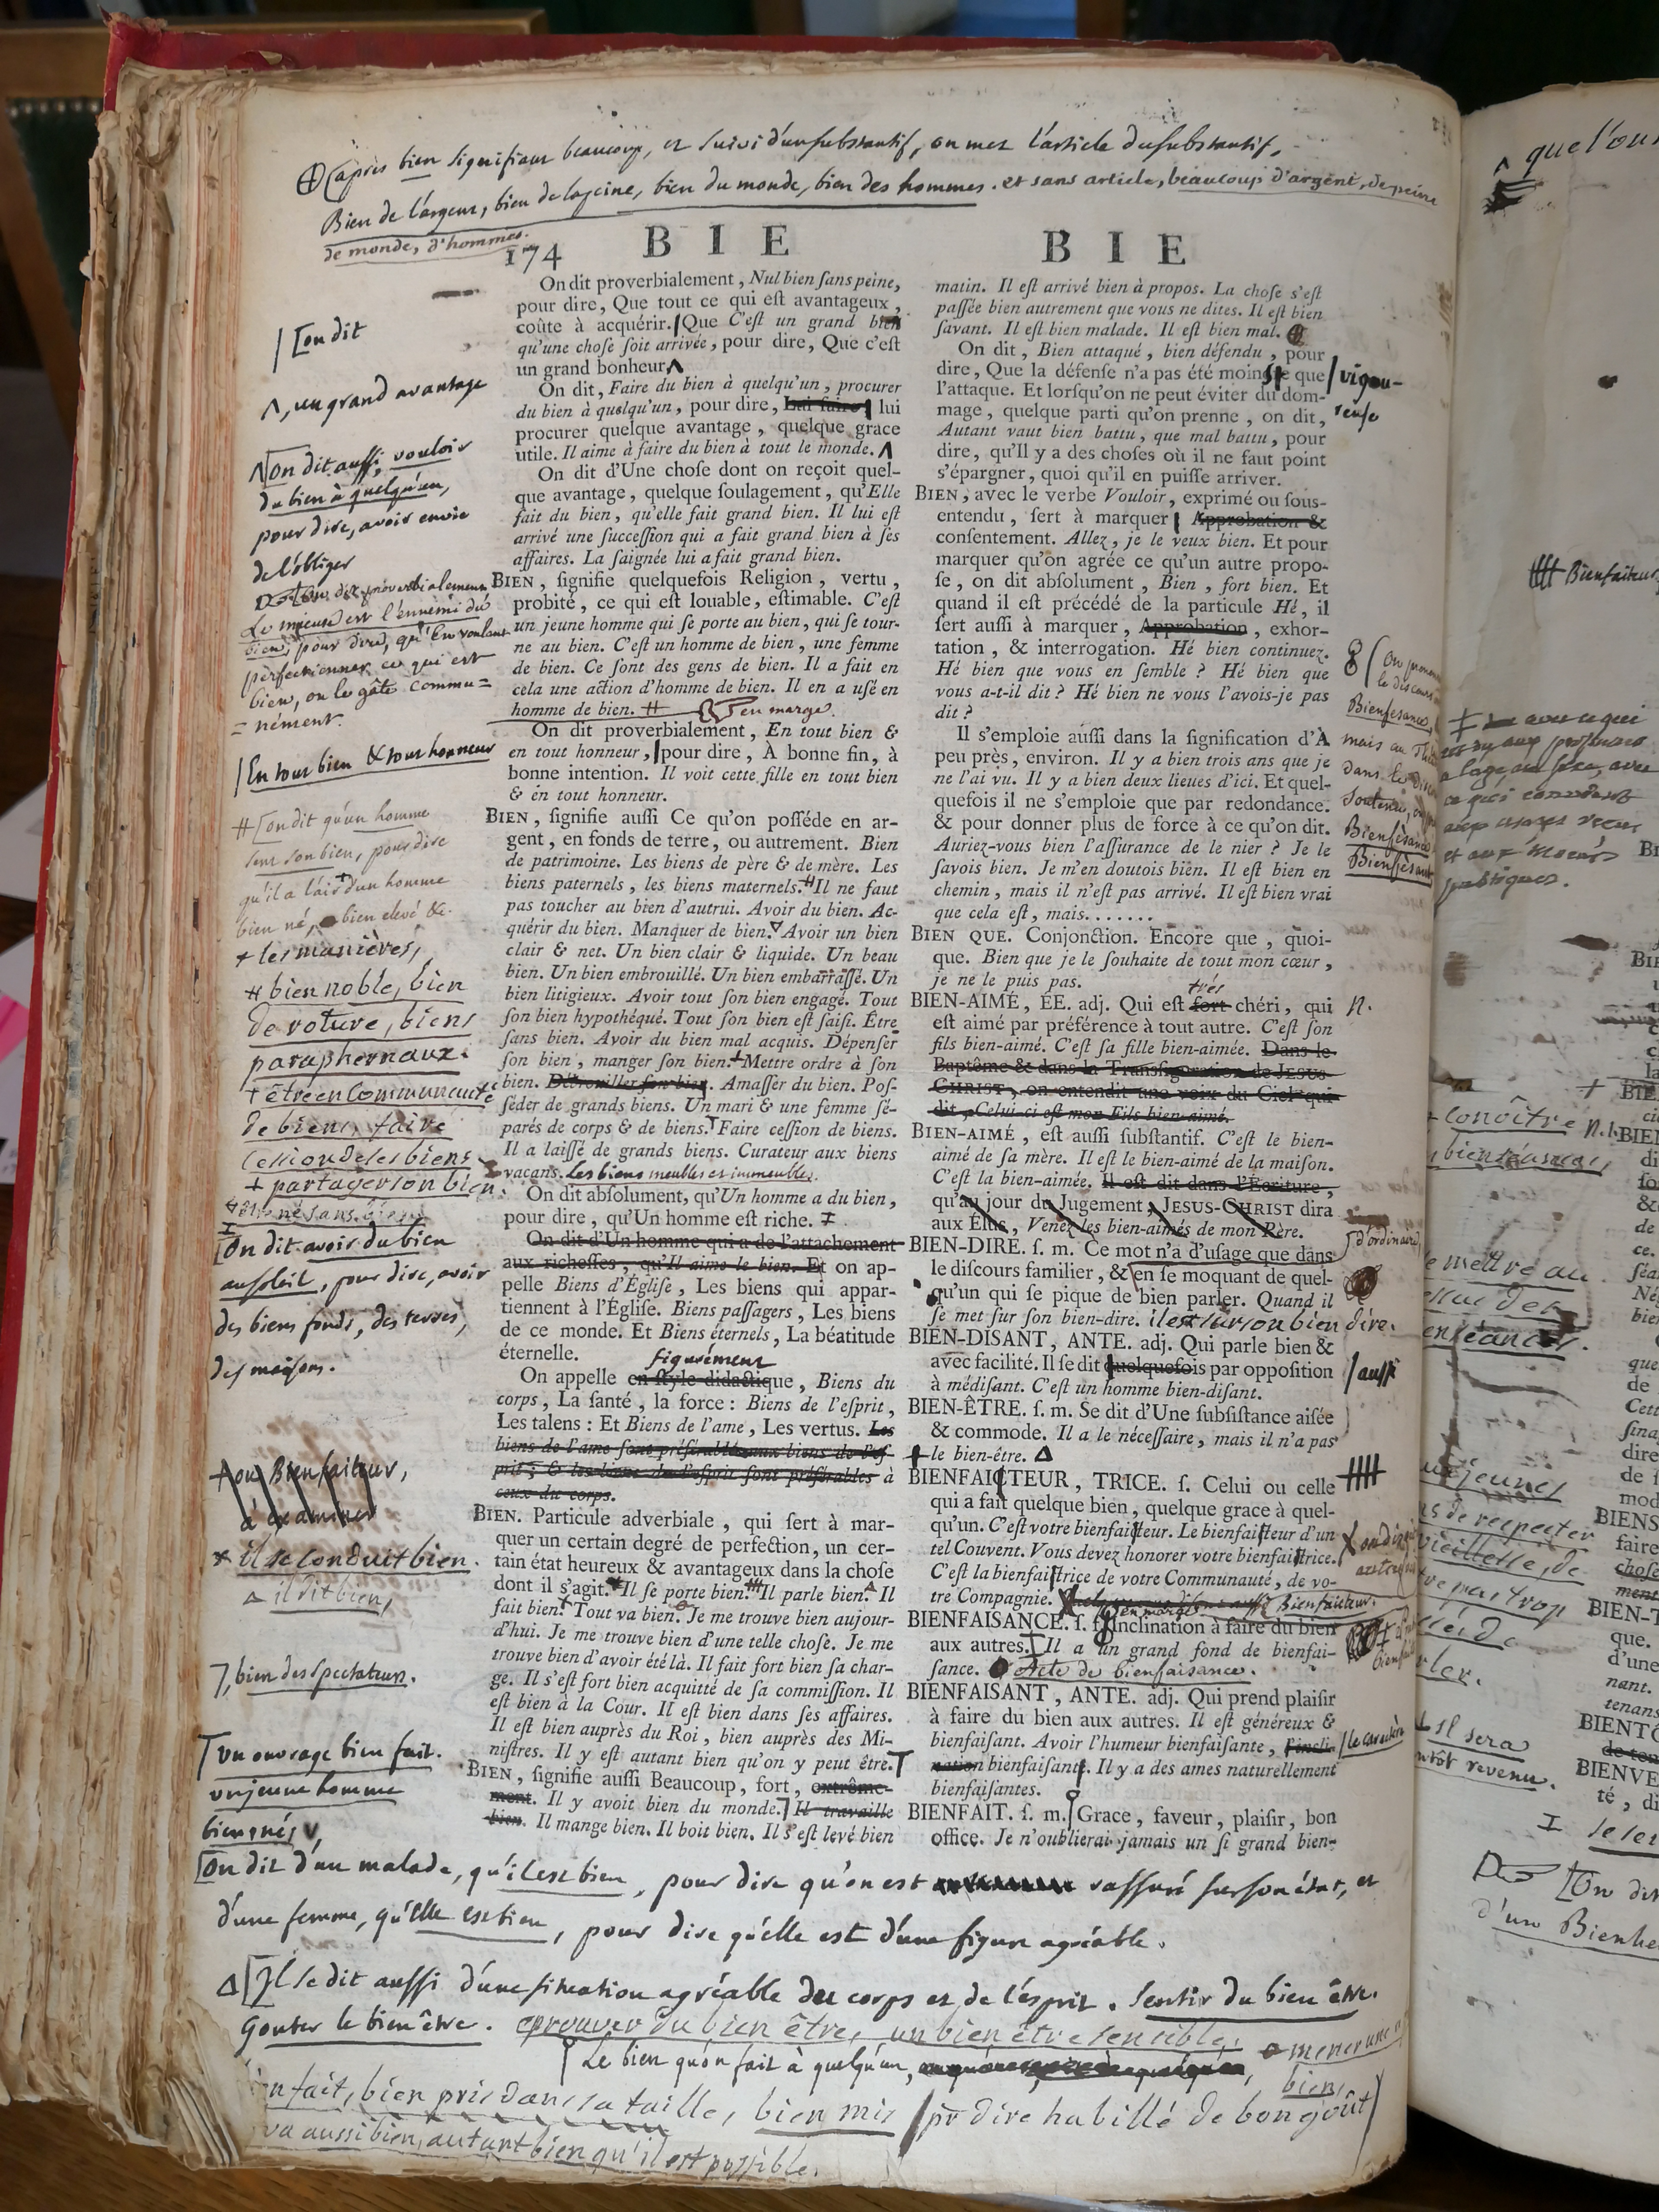 après bien signifiant beaucoup, et suivi d'un substantif, on met l'article du substantif,
Bien de l'argent, bien de la peine, bien du monde, bien des hommes. et sans article, beaucoup d'argent, de peine
de monde, d'hommes.
174 BIE BIE
On dit proverbialement, Nul bien ſans peine,
pour dire, Que tout ce qui eſt avantageux,
coûte à acquérir. Que C'eſt un grand bien
qu'une choſe ſoit arrivée, pour dire, Que c'eſt
un grand bonheur
On dit, Faire du bien à quelqu'un, procurer
du bien à quelqu'un, pour dire, Lui faire, lui
procurer quelque avantage, quelque grace
utile. Il aime à faire du bien à tout le monde.
On dit d'Une choſe dont on reçoit quel-
que avantage, quelque ſoulagement, qu'Elle
fait du bien, qu'elle fait grand bien. Il lui eſt
arrivé une ſucceſſion qui a fait grand bien à ſes
affaires. La ſaignée lui a fait grand bien.
BIEN, ſignifie quelquefois Religion, vertu,
probité, ce qui eſt louable, eſtimable. C'eſt
un jeune homme qui ſe porte au bien, qui ſe tour-
ne au bien. C'eſt un homme de bien, une femme
de bien. Ce ſont des gens de bien. Il a fait en
cela une action d'homme de bien. Il en a uſé en
homme de bien. # en marge.
On dit proverbialement, En tout bien &
en tout honneur, pour dire, À bonne fin, à
bonne intention. Il voit cette fille en tout bien
& en tout honneur.
BIEN, ſignifie auſſi Ce qu'on poſſéde en ar-
gent, en fonds de terre, ou autrement. Bien
de patrimoine. Les biens de père & de mère. Les
biens paternels, les biens maternels. # Il ne faut
pas toucher au bien d'autrui. Avoir du bien. Ac-
quérir du bien. Manquer de bien. Avoir un bien
clair & net. Un bien clair & liquide. Un beau
bien. Un bien embrouillé. Un bien embarraſſé. Un
bien litigieux. Avoir tout ſon bien engagé. Tout
ſon bien hypothéqué. Tout ſon bien eſt ſaiſi. Être
ſans bien. Avoir du bien mal acquis. Dépenſer
ſon bien, manger ſon bien. + Mettre ordre à ſon
bien. Débrouiller ſon bien. Amaſſer du bien. Poſ-
ſéder de grands biens. Un mari & une femme ſé-
parés de corps & de biens. Faire ceſſion de biens.
Il a laiſſé de grands biens. Curateur aux biens
vacans. Les biens meubles et immeubles.
On dit abſolument, qu'Un homme a du bien,
pour dire, qu'Un homme eſt riche.
On dit d'Un homme qui a de l'attachement
aux richeſſes, qu'Il aime le bien. Et on ap-
pelle Biens d'Égliſe, Les biens qui appar-
tiennent à l'Égliſe. Biens paſſagers, Les biens
de ce monde. Et Biens éternels, La béatitude
éternelle.
figurément
On appelle en ſtyle didactique, Biens du
corps, La ſanté, la force : Biens de l'eſprit,
Les talens : Et Biens de l'ame, Les vertus. Les
biens de l'ame ſont préférables aux biens de l'eſ-
prit ; & les biens de l'eſprit ſont préférables à
ceux du corps.
BIEN. Particule adverbiale, qui ſert à mar-
quer un certain degré de perfection, un cer-
tain état heureux & avantageux dans la choſe
dont il s'agit. Il ſe porte bien. Il parle bien. Il
fait bien. Tout va bien. Je me trouve bien aujour-
d'hui. Je me trouve bien d'une telle choſe. Je me
trouve bien d'avoir été là. Il fait fort bien ſa char-
ge. Il s'eſt fort bien acquitté de ſa commiſſion. Il
eſt bien à la Cour. Il eſt bien dans ſes affaires.
Il eſt bien auprès du Roi, bien auprès des Mi-
niſtres. Il y eſt autant bien qu'on y peut être.
BIEN, ſignifie auſſi Beaucoup, fort, extrême-
ment. Il y avoit bien du monde. Il travaille
bien. Il mange bien. Il boit bien. Il s'eſt levé bien
matin. Il eſt arrivé bien à propos. La choſe s'eſt
paſſée bien autrement que vous ne dites. Il eſt bien
ſavant. Il eſt bien malade. Il eſt bien mal.
On dit, Bien attaqué, bien défendu, pour
dire, Que la défenſe n'a pas été moins que
l'attaque. Et lorſqu'on ne peut éviter du dom-
mage, quelque parti qu'on prenne, on dit,
Autant vaut bien battu, que mal battu, pour
dire, qu'Il y a des choſes où il ne faut point
s'épargner, quoi qu'il en puiſſe arriver.
BIEN, avec le verbe Vouloir, exprimé ou ſous-
entendu, ſert à marquer Approbation &
conſentement. Allez, je le veux bien. Et pour
marquer qu'on agrée ce qu'un autre propo-
ſe, on dit abſolument, Bien, fort bien. Et
quand il eſt précédé de la particule Hé, il
ſert auſſi à marquer, Approbation, exhor-
tation, & interrogation. Hé bien continuez.
Hé bien que vous en ſemble ? Hé bien que
vous a-t-il dit ? Hé bien ne vous l'avois-je pas
dit ?
Il s'emploie auſſi dans la ſignification d'À
peu près, environ. Il y a bien trois ans que je
ne l'ai vu. Il y a bien deux lieues d'ici. Et quel-
quefois il ne s'emploie que par redondance.
& pour donner plus de force à ce qu'on dit.
Auriez-vous bien l'aſſurance de le nier ? Je le
ſavois bien. Je m'en doutois bien. Il eſt bien en
chemin, mais il n'eſt pas arrivé. Il eſt bien vrai
que cela eſt, mais.......
BIEN QUE. Conjonction. Encore que, quoi-
que. Bien que je le ſouhaite de tout mon cœur,
je ne le puis pas.
très
BIEN-AIMÉ, ÉE. adj. Qui eſt fort chéri, qui
eſt aimé par préférence à tout autre. C'eſt ſon
fils bien-aimé. C'eſt ſa fille bien-aimée. Dans le
Baptême & dans la Transfiguration de JESUS-
CHRIST, on entendit une voix du Ciel qui
dit, Celui-ci eſt mon Fils bien-aimé.
BIEN-AIMÉ, eſt auſſi ſubſtantif. C'eſt le bien-
aimé de ſa mère. Il eſt le bien-aimé de la maiſon.
C'eſt la bien-aimée. Il eſt dit dans l'Écriture,
qu'au jour du Jugement, JESUS-CHRIST dira
aux Élus, Venez les bien-aimés de mon Père.
BIEN-DIRE. ſ. m. Ce mot n'a d'uſage que dans
le diſcours familier, & en ſe moquant de quel-
qu'un qui ſe pique de bien parler. Quand il
ſe met ſur ſon bien-dire. il est sur son bien dire.
BIEN-DISANT, ANTE. adj. Qui parle bien &
avec facilité. Il ſe dit quelquefois par oppoſition
à médiſant. C'eſt un homme bien-diſant.
BIEN-ÊTRE. ſ. m. Se dit d'Une ſubſiſtance aiſée
& commode. Il a le néceſſaire, mais il n'a pas
le bien-être.
BIENFAICTEUR, TRICE. ſ. Celui ou celle
qui a fait quelque bien, quelque grace à quel-
qu'un. C'eſt votre bienfaicteur. Le bienfaicteur d'un
tel Couvent. Vous devez honorer votre bienfaictrice.
C'eſt la bienfaictrice de votre Communauté, de vo-
tre Compagnie.
BIENFAISANCE. ſ. f. Inclination à faire du bien
aux autres. Il a un grand fond de bienfai-
ſance. Acte de bienfaisance.
BIENFAISANT, ANTE. adj. Qui prend plaiſir
à faire du bien aux autres. Il eſt généreux &
bienfaiſant. Avoir l'humeur bienfaiſante, l'incli-
nation bienfaiſante. Il y a des ames naturellement
bienfaiſantes.
BIENFAIT. ſ. m. Grace, faveur, plaiſir, bon
office. Je n'oublierai jamais un ſi grand bien-
[on dit
, un grand avantage
[on dit aussi, vouloir
du bien à quelqu'un,
pour dire, avoir envie
de l'obliger
On dit proverbialement
Le mieux est l'ennemi du
bien, pour dire, qu'En voulant
perfectionner ce qui est
bien, on le gâte commu=
=nément.
En tout bien & tout honneur
#[on dit qu'un homme
sent son bien, pour dire
qu'il a l'air d'un homme
bien né, bien elevé &c.
+ les manières,
# bien noble, bien
de roture, biens
paraphernaux.
+ être en communauté
de biens, faire
cession de ses biens
+ partager son bien
[On dit avoir du bien
au soleil, pour dire, avoir
des biens fonds, des terres,
des maisons.
+ ou Bienfaiteur,
à examiner
* il se conduit bien.
il dit bien,
, bien des spectateurs.
un ouvrage bien fait.
un jeune homme
bien nés,
vigou-
reuse
n.
d'ordinaire
aussi
le caractère
Bienfesance,
Bienfèsance
Bienfèsant
[On dit d'un malade, qu'il est bien, pour dire qu'on est rassuré sur son état, et
d'une femme, qu'elle est bien, pour dire qu'elle est d'une figure agréable.
[Il se dit aussi d'une situation agréable du corps et de l'esprit. Sentir du bien être.
Gouter le bien être. eprouver du bien être, un bien être sensible.
Le bien qu'on fait à quelqu'un,
mener une
bien
fait, bien pris dans sa taille, bien mis pr dire habillé de bon goût
va aussi bien, autant bien qu'il est possible.
que l'on
Bienfaiteur
conoître
bienséances,
mettre au
enséances.
jeunes
de respecter
vieillesse, de
pas trop
Il sera
ntôt revenu.
[On dit
d'un Bienhe
BIENS
faire
choſe
BIEN-T
que.
d'une
nant.
tenans
BIENTÔ
BIENVE
té, di